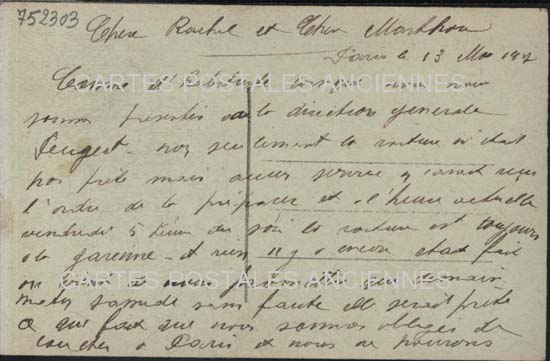 752303
Chère Rachel et Cher
Paris le 13 Mai
Comme d'habitude lorsque nous nous
CARTES POSTALES ANCIENNES
sommes présentés à la direction generale
Peugeot non seulement la voiture n'était
pas prête mais aucun service y avait reçu
l'ordre de la préparer et à l'heure actuelle
vendredi 5 heures du soir la voiture est toujours
à la garenne et rien n'y a encore était fait
on nous a promis que demain
CARTES POSTALES ANCIENNES
matin samedi sans faute elle serait prête
ce qui fait que nous sommes obligés de
coucher à Paris et nous ne pouvons